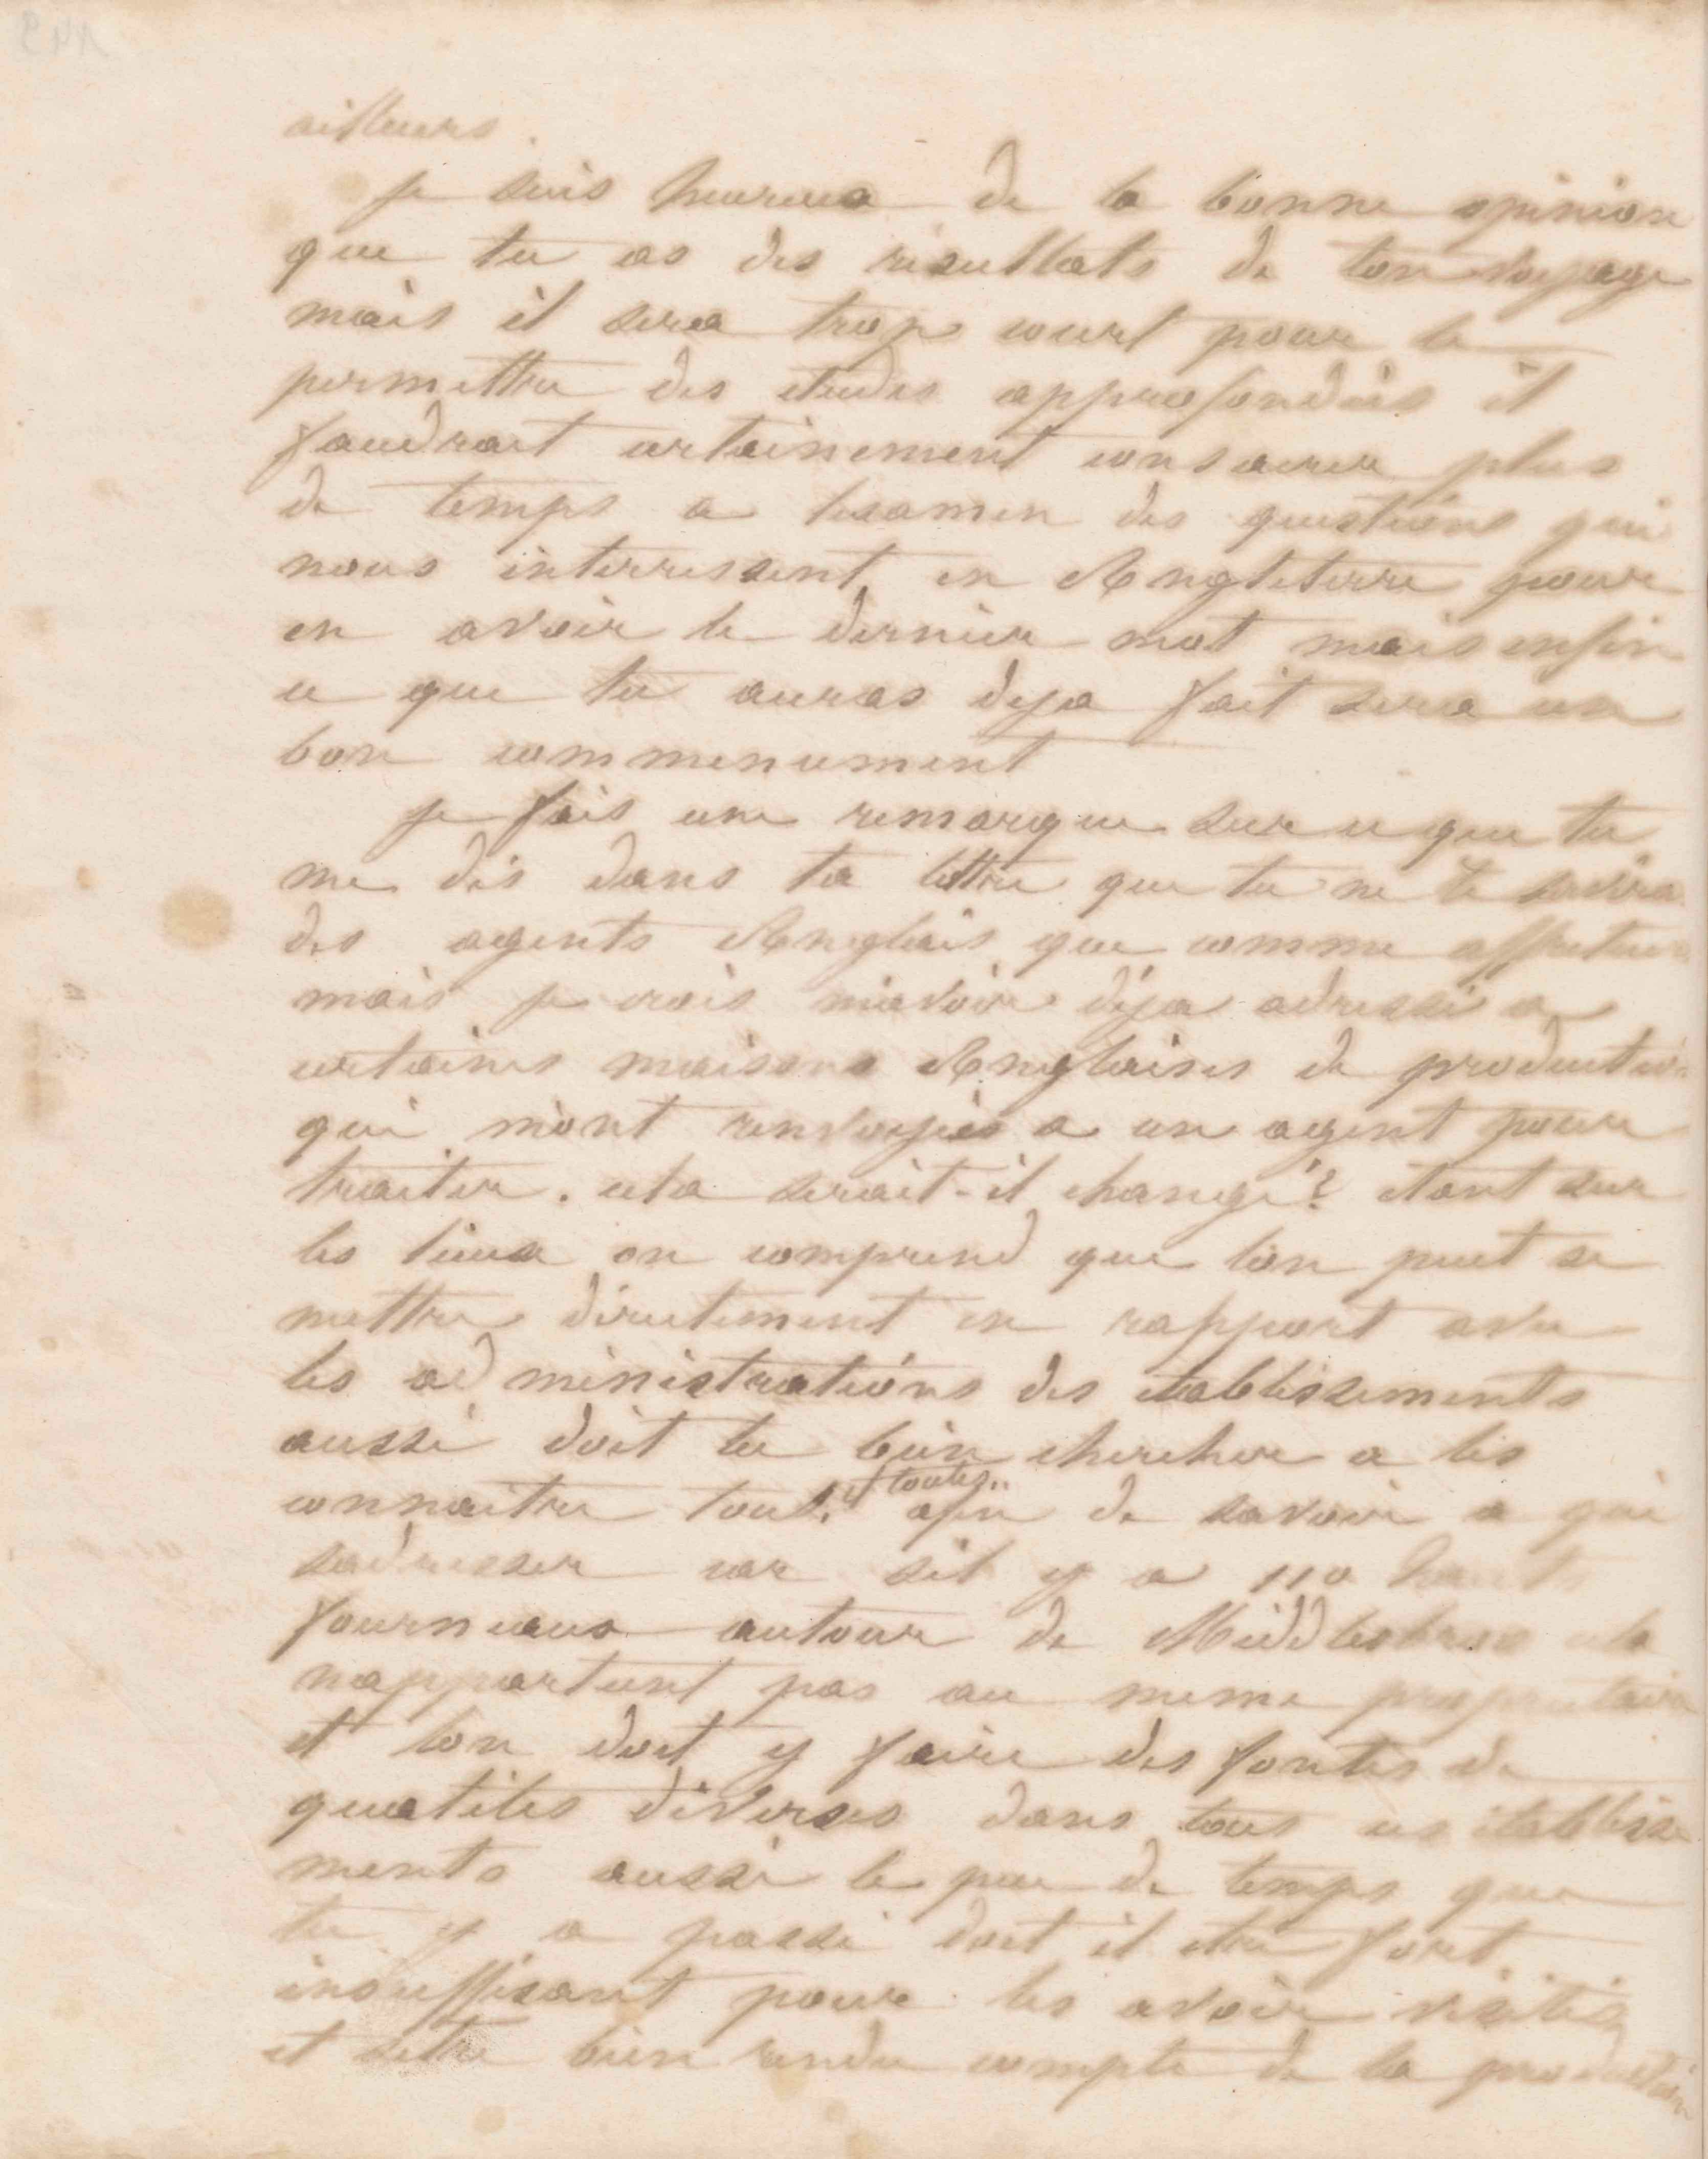 ailleurs.
je suis heureux de la bonne opinion
que tu as des résultats de ton voyage
mais il sera trop court pour te
permettre des etudes approfondies il
faudrait certainement consacrer plus
de temps a lexamen des questions qui
nous interressent en Angleterre pour
en avoir le dernier mot mais enfin
ce que tu auras deja fait sera un
bon commencement
je fais une remarque sur ce que tu
me dis dans ta lettre que tu ne te
des agents Anglais que comme affreteurs
mais je crois m'avoir déja adressé a
certaines maisons Anglaises de production
qui m'ont renvoyés a un agent pour
traiter. cela serait-il changé? etant sur
les lieux on comprend que lon peut se
mettre directement en rapport avec
les administrations des etablissements
aussi doit tu bien chercher a les
connaitre tous. et toutes.. afin de savoir a qui
sadresser car sil y a 110 hauts
fourneaux autour de Middlesbroo cela
nappartient pas au meme proprietaire
et lon doit y faire des fontes de
qualités diverses dans tous ces établisse
ments aussi le peu de temps que
tu y a passé doit il etre fort
insuffisant pour les avoir visités
et setre bien rendu compte de la production